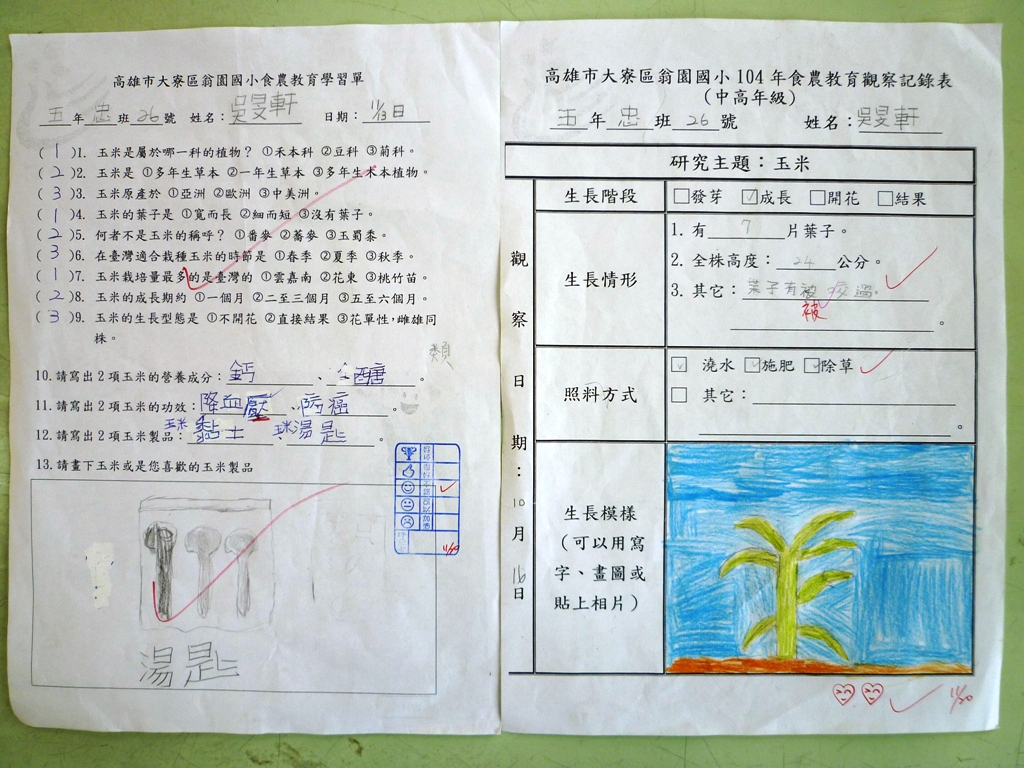 高雄市大寮區翁園國小食農教育學習單
五年忠班26號 姓名：吳旻軒 日期：11/13日
(1)1. 玉米是屬於哪一科的植物？ ①禾本科 ②豆科 ③菊科。
(2)2. 玉米是 ①多年生草本 ②一年生草本 ③多年生木本植物。
(3)3. 玉米原產於 ①亞洲 ②歐洲 ③中美洲。
(1)4. 玉米的葉子是 ①寬而長 ②細而短 ③沒有葉子。
(2)5. 何者不是玉米的稱呼？ ①番麥 ②蕎麥 ③玉蜀黍。
(3)6. 在臺灣適合栽種玉米的時節是 ①春季 ②夏季 ③秋季。
(1)7. 玉米栽培量最多的是臺灣的 ①雲嘉南 ②花東 ③桃竹苗。
(2)8. 玉米的成長期約 ①一個月 ②二至三個月 ③五至六個月。
(3)9. 玉米的生長型態是 ①不開花 ②直接結果 ③花單性，雌雄同
株。
10.請寫出2項玉米的營養成分：鈣、醣類。
11.請寫出2項玉米的功效：降血壓、防癌。
12.請寫出2項玉米製品：玉米黏土、玉米湯匙。
13.請畫下玉米或是您喜歡的玉米製品
湯匙
11/20
高雄市大寮區翁園國小104年食農教育觀察記錄表
（中高年級）
五年忠班26號 姓名：吳旻軒
研究主題：玉米
觀察日期：10月16日
生長階段 □發芽 ☑成長 □開花 □結果
生長情形
1. 有7片葉子。
2. 全株高度：24公分。
3. 其它：葉子有被咬過
被
。
照料方式
☑ 澆水 ☑施肥 ☑除草
□ 其它：
。
生長模樣
（可以用寫
字、畫圖或
貼上相片）
11/20